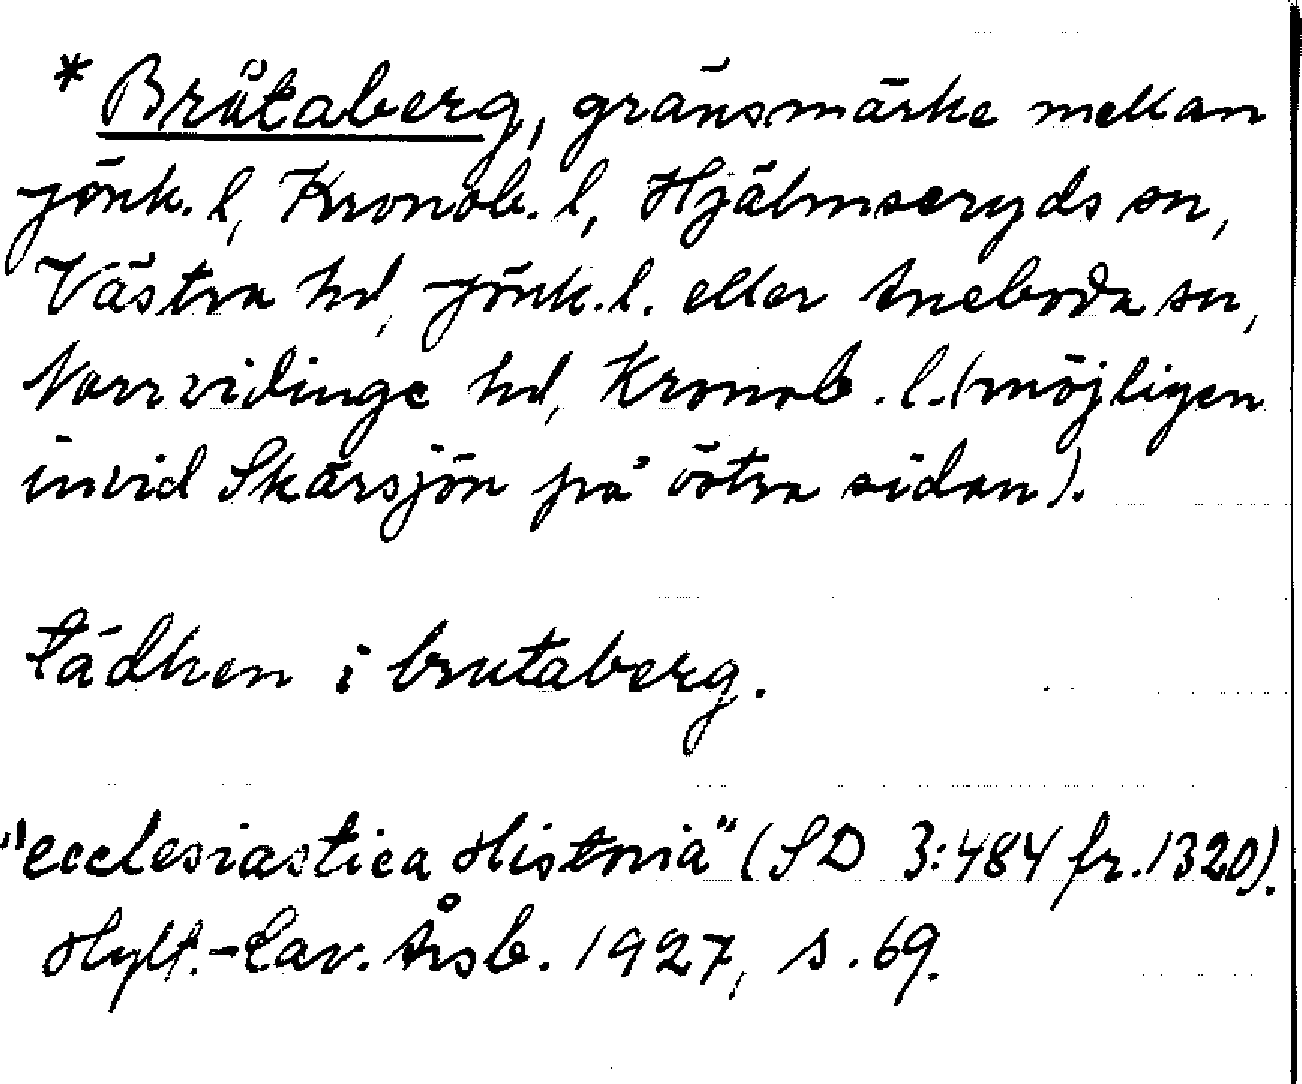 * Brůtaberg, gränsmärke mellan
Jönk. l, Kronob. l, Hjälmseryds sn,
Västra hd, Jönk. l. eller Aneboda sn,
Norrvidinge hd, Kronob. l. (möjligen
invid Skärsjön på östra sidan).
tädhen i brutaberg.
"ecclesiastica Historia" (SD 3:484 fr. 1320).
Hylt.-Cav. Årsb. 1927, s. 69.